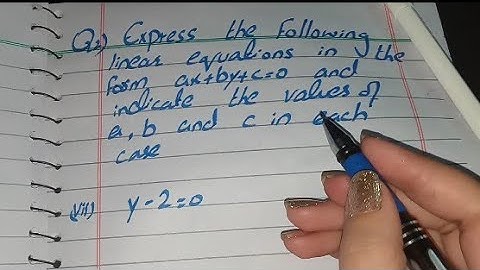 Q2) Express the Following
linear equations in the
form ax+by+c=0 and
indicate the values of
a, b and c in each
case
(vii) y-2=0